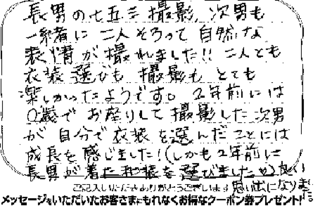 長男の七五三撮影、次男も
一緒に二人そろって自然な
表情が撮れました!!二人とも
衣装選びも撮影もとても
楽しかったようです。2年前には
0歳でお座りして撮影した次男
が自分で衣装を選んだことには
成長を感じました!(しかも2年前に
長男が着た和装を選びました
ご記入いただきありがとうございます 思い出になりました
メッセージをいただいたお客さまにもれなくお得なクーポン券プレゼント!